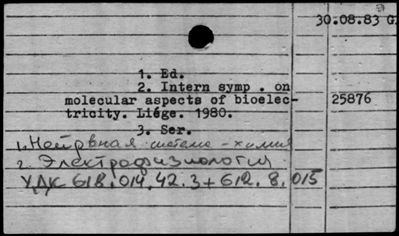 30.08.83
1. Ed.
2. Intern symp . on
molecular aspects of bioelec-
tricity. Liége. 1980.
25876
3. Ser.
1. Нервная система - химия
2. Электрофизиология
УДК 618.014.42.3+612.8.015